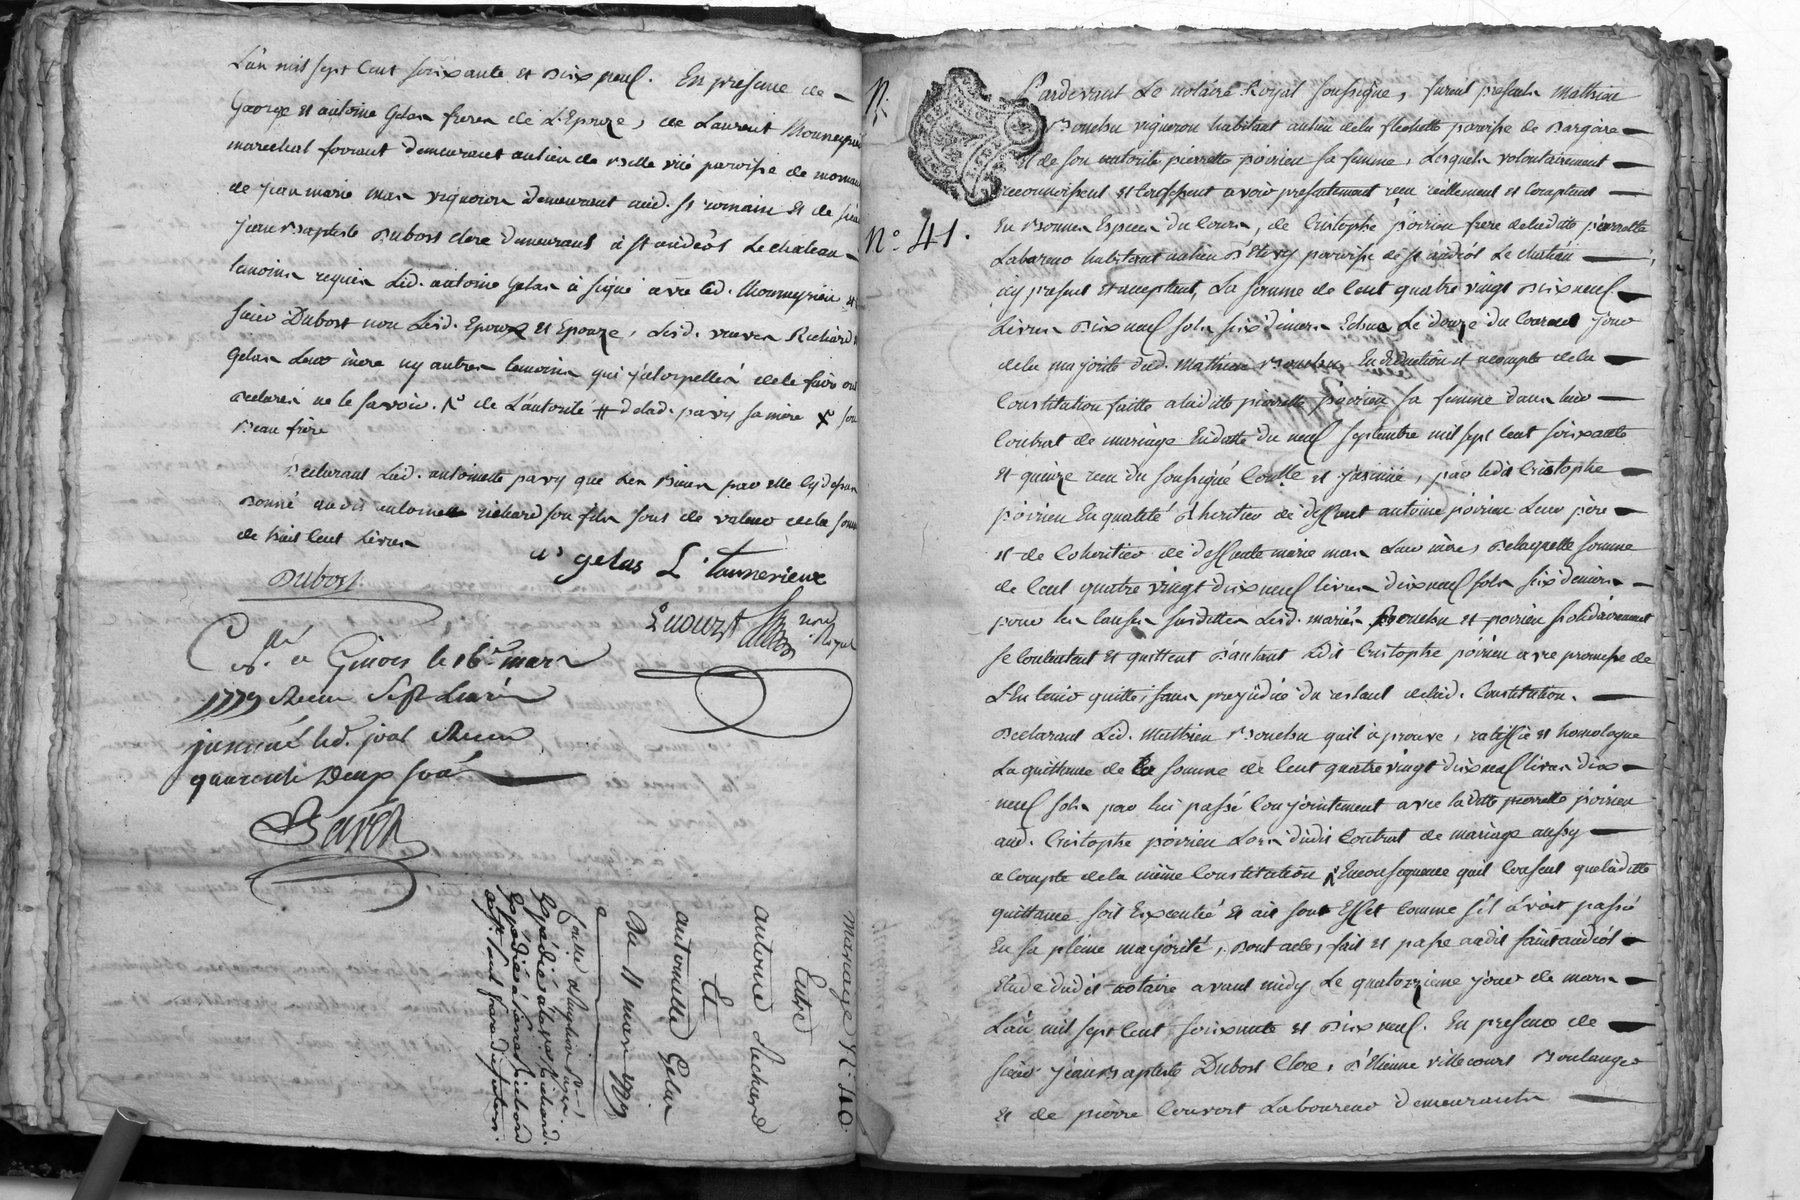 L'an mil sept cent soixante et dix neuf. En presence de
George et antoine Gelas freres de L'Epouze, de Laurent Thoumeyrieu
marechal ferrant demeurant au lieu de Belle vüe paroisse de mornan
de jean marie mas vigneron demeurant aud. st romain et de sieur
jean Baptiste Dubost clerc demeurant à st andeol Le chateau
temoins requis Led. antoine Gelas à signé avec led. Thoumeyrieu et
sieur Dubost non Lesd. Epoux et Epouze, Lesd. veuves Richard et
Gelas Leur mère ny autres temoins qui j'atorpellés de le faire ont
Declarés ne le savoir. de L'autorité # delad. pavy sa mère x son
Beau frère
Declarant Lad. antoinette pavy que Les Biens par elle cy dessus
Donné audit antoine richard son fils sont de valeur de la somme
de huit cent Livres
Dubost
a gelas L. tourrerieux
not. Royal
à Givors le 16e mars
1779 Reçu sept Livres
jnsinué led. jour Reçu
quarente Deux sols
mariage N.o 40.
Entre
antoine Richard
Et
antoinette Gelas
Du 11 mars 1779
N.o 41.
Pardevant Le notaire Royal soussigné, furent presents Mathieu
Bouchu vigneron habitant au lieu de la flechette paroisse de Dargoire
et de son autorité pierrette poirieu sa femme, Lesquels volontairement
reconnoissent et confessent avoir presentement reçu réellement et comptant
En Bonnes Especes du Cours, de Cristophe poirieu frere de laditte pierrette
Laboureur habitant au lieu D'Etivy paroisse de st andeol Le chateau
icy present et acceptant, La somme de Cent quatre vingt Dix neuf
Livres Dix neuf sols six deniers Echue Le douze du Courant jour
de la majorité dud. Mathieu Bouchu, En deduction et acompte de la
Constitution faitte a laditte pierrette poirieu sa femme dans leur
Contrat de mariage En datte du neuf septembre mil sept cent soixante
et quinze reçu du soussigné Contllé et jnsinué, par ledit Cristophe
poirieu En qualité d'heritier de deffunt antoine poirieu Leur père
et de Coheritier de deffunte marie mas Leur mère, De laquelle somme
de Cent quatre vingt dix neuf livres dix neuf sols six deniers
pour les causes susdittes Lesd. mariés Bouchu et poirieu solidairement
se contentent et quittent D'autant Ledit Cristophe poirieu avec promesse de
L'En tenir quitte, sans prejudice du restant de lad. Constitution.
Declarant Led. Mathieu Bouchu quil aprouve, ratiffie et homologue
La quittance de la somme de Cent quatre vingt dix neuf livres dix
neuf sols par lui passé Conjointement avec laditte pierrette poirieu
aud. Cristophe poirieu Lors dudit Contrat de mariage aussy
a Compte de la même Constitution, En consequence quil consent que laditte
quittance soit Executé et ait sont Effet Comme s'il avoit passé
En sa pleine majorité, Dont acte, fait et passé audit saint andeol
Etude dudit notaire avant midy Le quatorzieme jour de mars
L'an mil sept cent soixante et Dix neuf. En presence de
sieur jean Baptiste Dubost Clerc, D'Etienne villecourt Boulanger
et de pierre Convert Laboureur demeurants